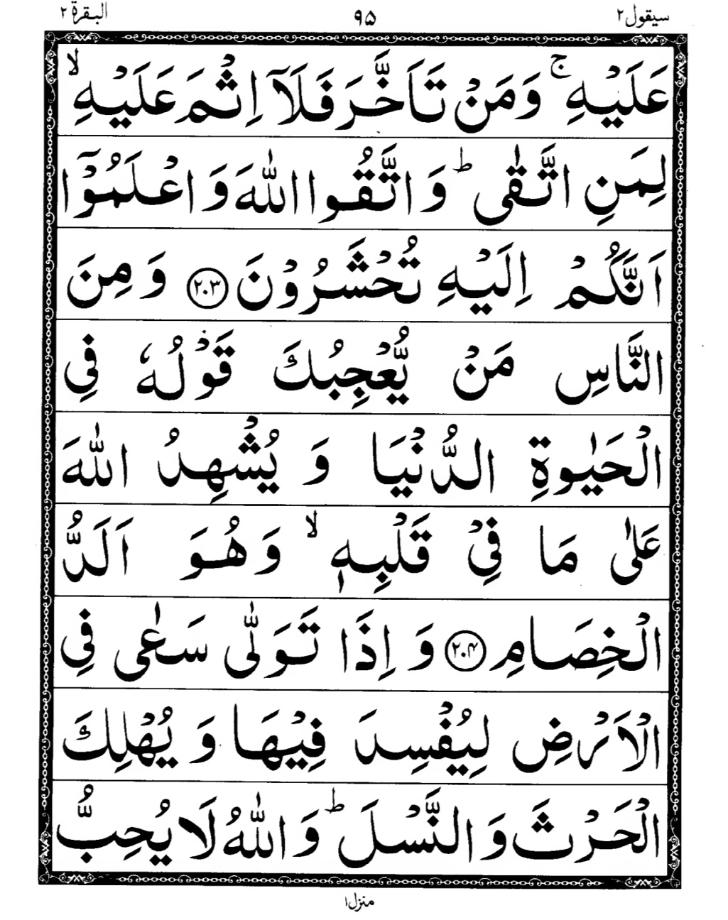 سيقول ٢ ٩۵ البقرة ٢
عَلَيْهِ ۚ وَمَنْ تَاَخَّرَ فَلَاۤ اِثْمَ عَلَيْهِ ۙ
لِمَنِ اتَّقٰى ؕ وَاتَّقُوا اللّٰهَ وَاعْلَمُوْۤا
اَنَّكُمْ اِلَيْهِ تُحْشَرُوْنَ ﴿۲۰۳﴾ وَمِنَ
النَّاسِ مَنْ يُّعْجِبُكَ قَوْلُهٗ فِي
الْحَيٰوةِ الدُّنْيَا وَ يُشْهِدُ اللّٰهَ
عَلٰى مَا فِيْ قَلْبِهٖ ۙ وَهُوَ اَلَدُّ
الْخِصَامِ ﴿۲۰۴﴾ وَ اِذَا تَوَلّٰى سَعٰى فِي
الْاَرْضِ لِيُفْسِدَ فِيْهَا وَ يُهْلِكَ
الْحَرْثَ وَالنَّسْلَ ؕ وَاللّٰهُ لَا يُحِبُّ
منزل ١